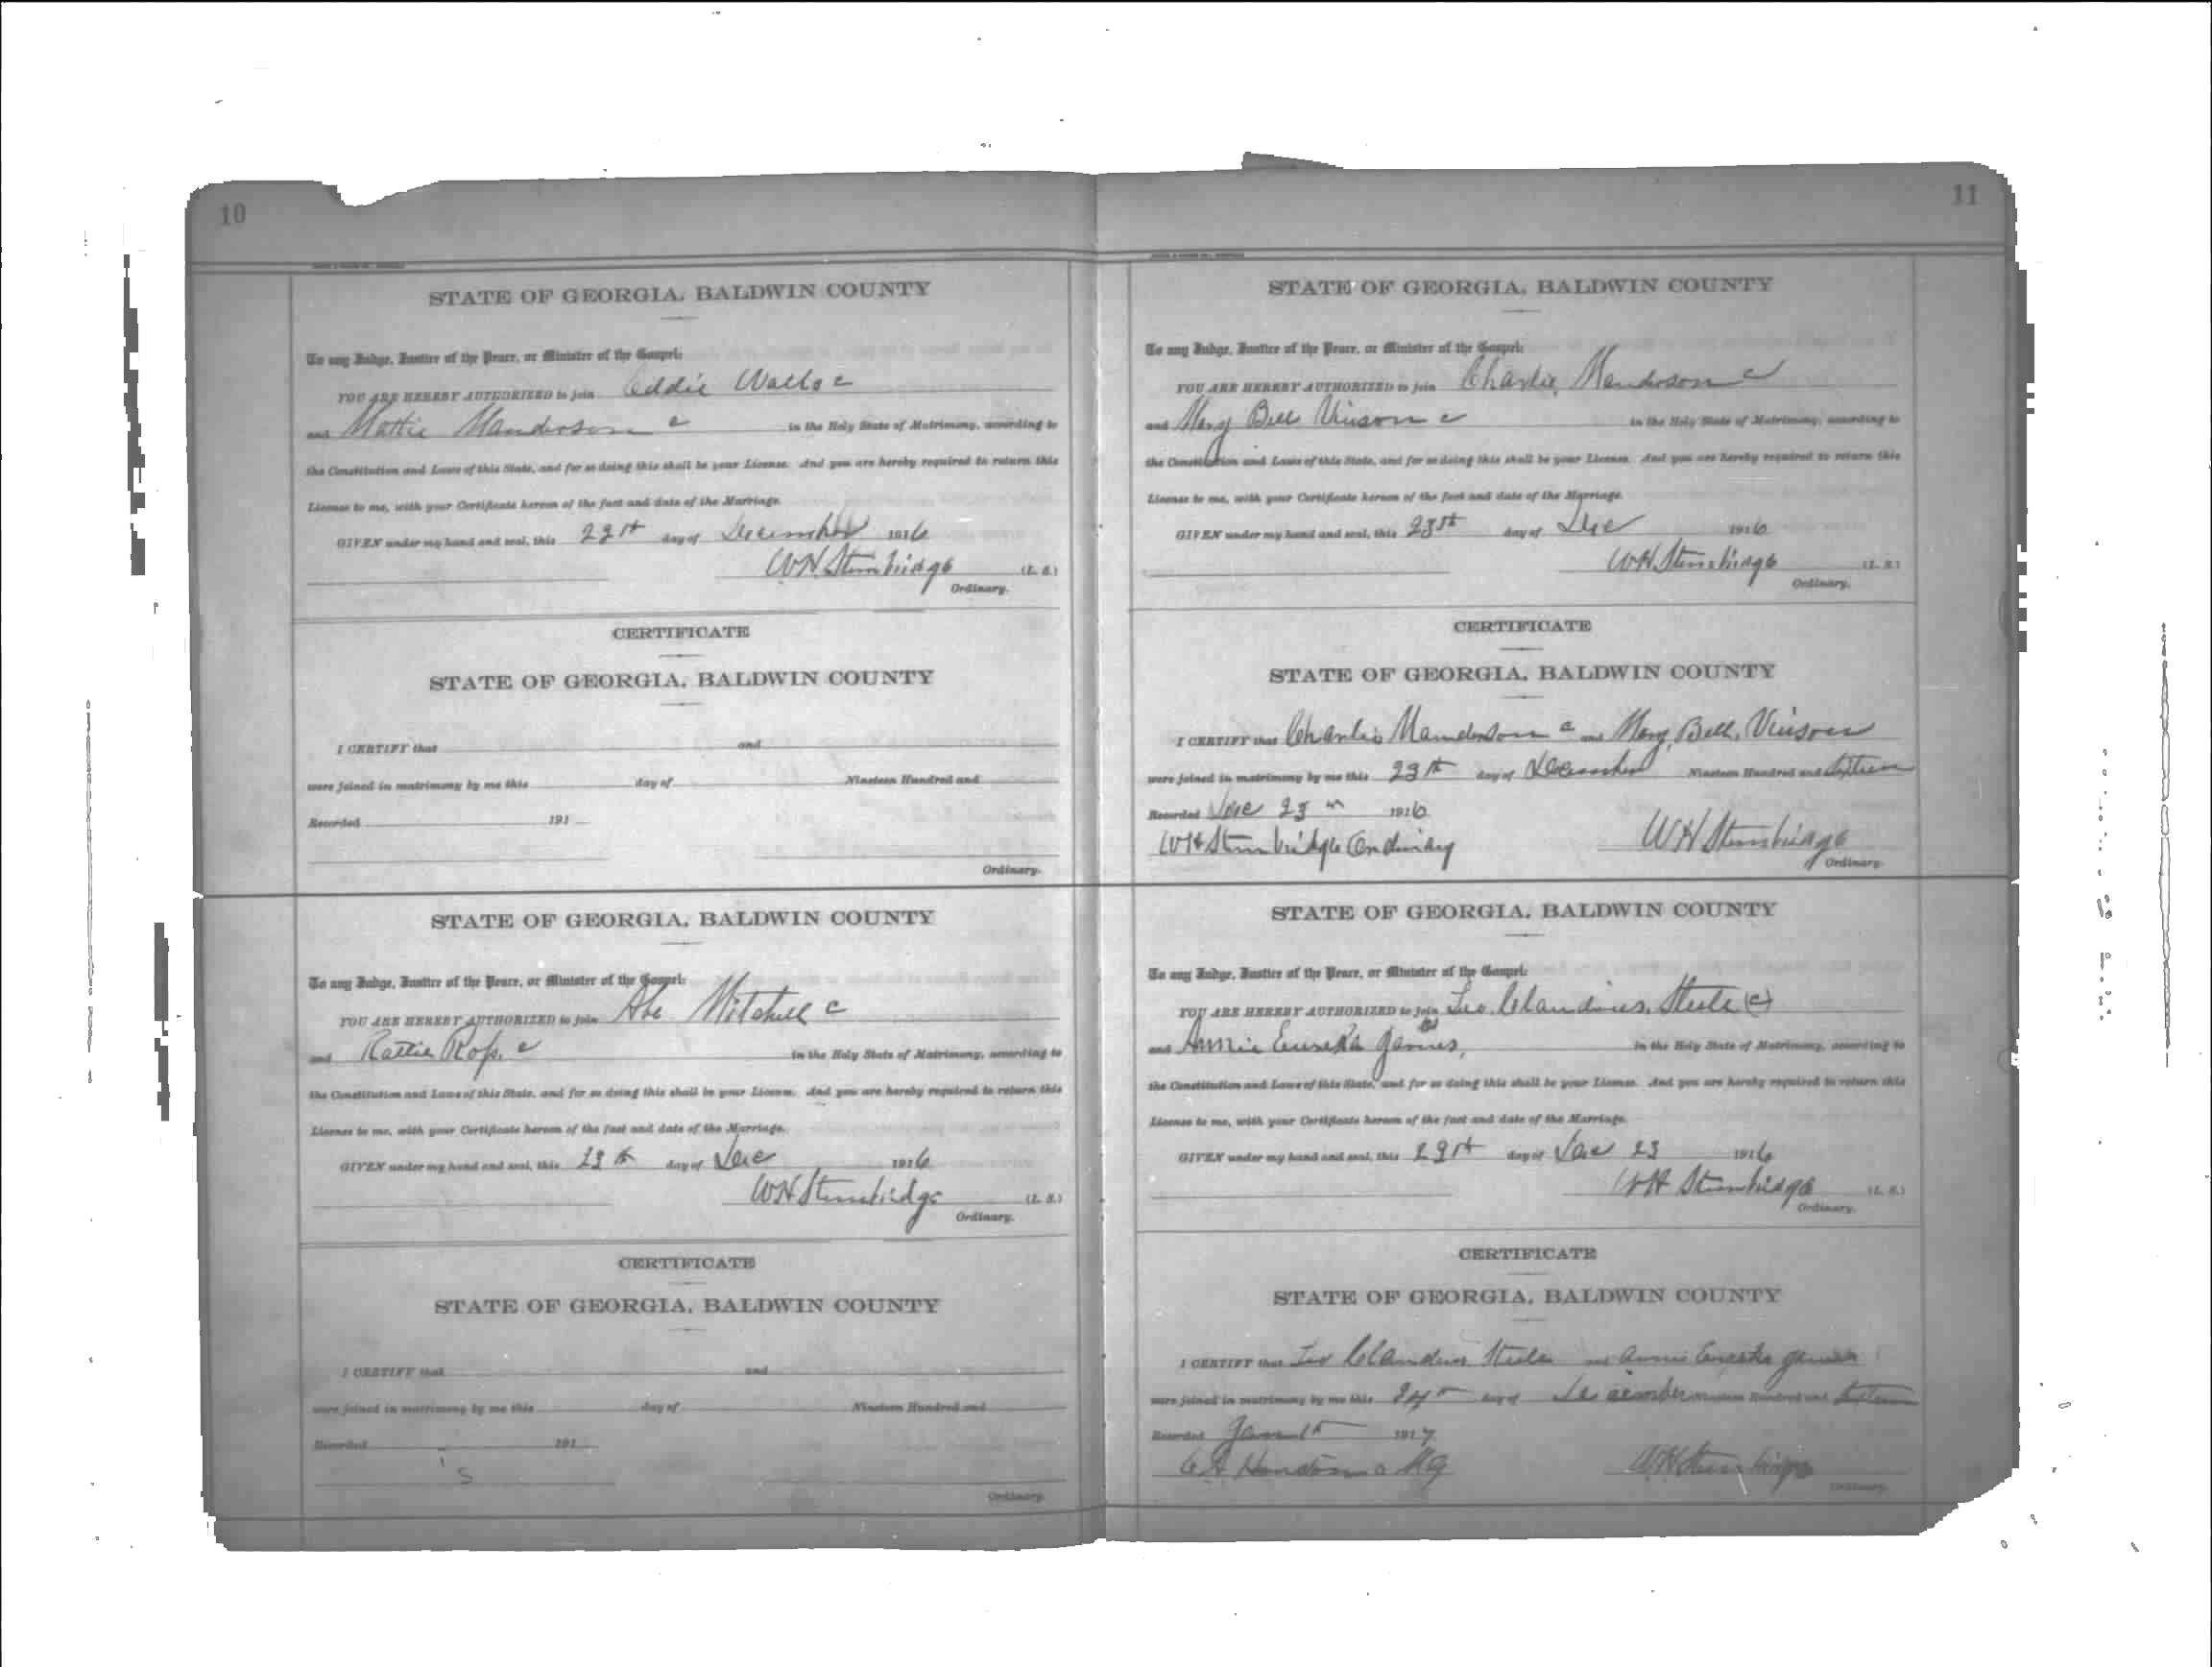 10
STATE OF GEORGIA, BALDWIN COUNTY
To any Judge, Justice of the Peace, or Minister of the Gospel:
YOU ARE HEREBY AUTHORIZED to join Eddie Walls c
and Mattie Manderson c in the Holy State of Matrimony, according to
the Constitution and Laws of this State, and for so doing this shall be your License. And you are hereby required to return this
License to me, with your Certificate hereon of the fact and date of the Marriage.
GIVEN under my hand and seal, this day of December 1916
WH Stembridge (L. S.)
Ordinary.
CERTIFICATE
STATE OF GEORGIA, BALDWIN COUNTY
I CERTIFY that and
were joined in matrimony by me this day of Nineteen Hundred and
Recorded 191
Ordinary.
STATE OF GEORGIA, BALDWIN COUNTY
To any Judge, Justice of the Peace, or Minister of the Gospel:
YOU ARE HEREBY AUTHORIZED to join Abe Mitchell c
and Ross c in the Holy State of Matrimony, according to
the Constitution and Laws of this State, and for so doing this shall be your License. And you are hereby required to return this
License to me, with your Certificate hereon of the fact and date of the Marriage.
GIVEN under my hand and seal, this 23th day of Dec 1916
WH Stembridge (L. S.)
Ordinary.
CERTIFICATE
STATE OF GEORGIA, BALDWIN COUNTY
I CERTIFY that and
were joined in matrimony by me this day of Nineteen Hundred and
Recorded 191
Ordinary.
11
STATE OF GEORGIA, BALDWIN COUNTY
To any Judge, Justice of the Peace, or Minister of the Gospel:
YOU ARE HEREBY AUTHORIZED to join Charlie Manderson c
and Mary Bell Vinson c in the Holy State of Matrimony, according to
the Constitution and Laws of this State, and for so doing this shall be your License. And you are hereby required to return this
License to me, with your Certificate hereon of the fact and date of the Marriage.
GIVEN under my hand and seal, this 23th day of Dec 1916
WH Stembridge (L. S.)
Ordinary.
CERTIFICATE
STATE OF GEORGIA, BALDWIN COUNTY
I CERTIFY that Charlie Manderson c and Mary Bell Vinson
were joined in matrimony by me this 23th day of December Nineteen Hundred and Sixteen
Recorded Dec 23 1916
WH Stembridge Ordinary WH Stembridge
Ordinary.
STATE OF GEORGIA, BALDWIN COUNTY
To any Judge, Justice of the Peace, or Minister of the Gospel:
YOU ARE HEREBY AUTHORIZED to join Leo Claudius Steele (c)
and Annie Eureka in the Holy State of Matrimony, according to
the Constitution and Laws of this State, and for so doing this shall be your License. And you are hereby required to return this
License to me, with your Certificate hereon of the fact and date of the Marriage.
GIVEN under my hand and seal, this 23th day of Dec 23 1916
WH Stembridge (L. S.)
Ordinary.
CERTIFICATE
STATE OF GEORGIA, BALDWIN COUNTY
I CERTIFY that Leo Claudius Steele and Annie Eureka
were joined in matrimony by me this 24th day of December Nineteen Hundred and Sixteen
Recorded 1917
WH Stembridge
Ordinary.